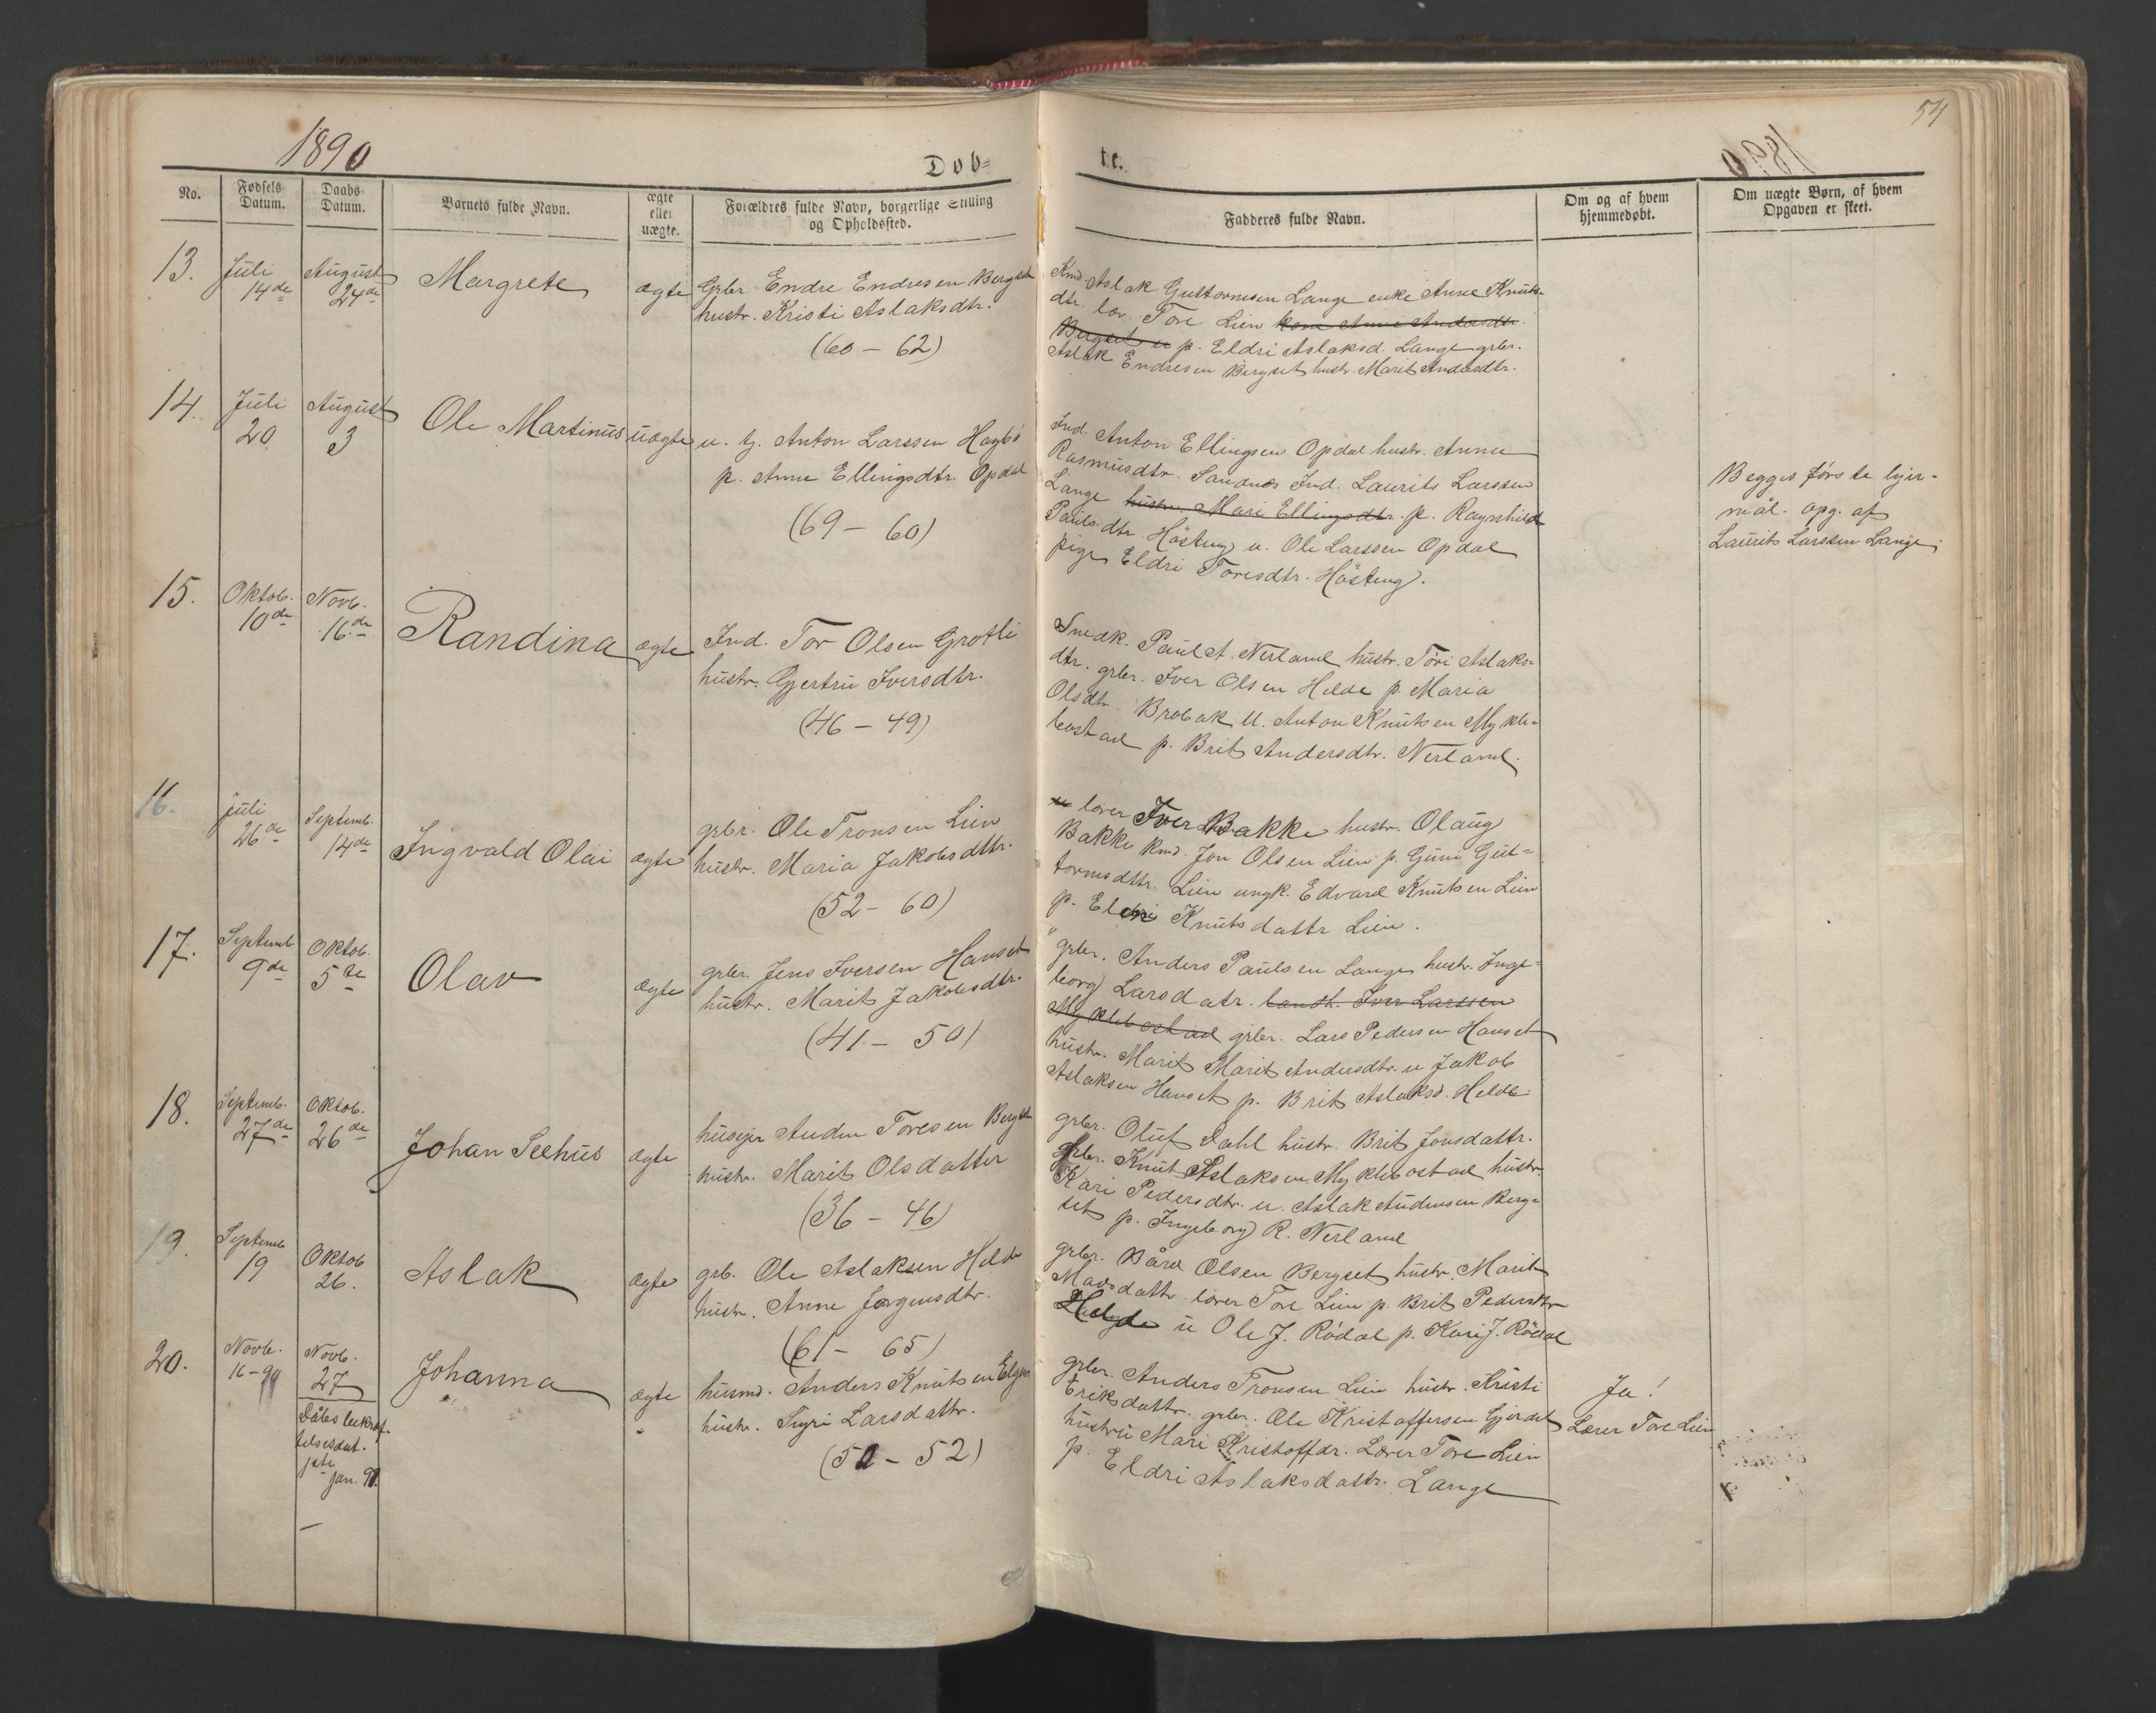 1890
Døb=
No.
Fødsels Datum.
Daabs Datum.
Barnets fulde Navn.
ægte eller uægte.
Forældres fulde Navn, borgerlige Stilling
og Opholdssted.
13. Juli 14de August 24de Margrete ægte Grbr Endre Endresen Bergset
hustr. Kristi Aslaksdtr.
(60 – 62)
14. Juli 20 August 3 Ole Martinus uægte u. g. Anton Larssen Hagbö
p. Anne Ellingsdtr. Opdal
(69 – 60)
15. Oktob. 10de Novb. 16de Randina ægte Ind. Tor Olsen Grotli
hustr. Gjertru Iversdtr.
(46 – 49)
16. Juli 26de Septemb. 14de Ingvald Olai ægte grbr. Ole Tronsen Lien
hustr. Maria Jakobsdttr.
(52 – 60)
17. Septemb 9de Oktob. 5te Olav ægte grbr. Jens Iversen Hanset
hustr. Marit Jakobsdtr.
(41 – 50)
18. Septemb. 27de Oktob. 26de Johan Seehus ægte husejer Auden Toresen Bergset
hustr. Marit Olsdatter
(36 – 46)
19. Septemb 19 Oktob 26. Aslak ægte grb. Ole Aslaksen Helde
hustr. Anne Jørgensdtr.
(61 – 65)
20. Novb. 16 – 90 Novb. 27 Johanna ægte husmd. Anders Knutsen
hustr. Sigri Larsdattr.
(50 – 52)
Dåbs bekræf-
telsesdat.
jan. 91.
54
te.
1890
Fadderes fulde Navn.
Om og af hvem
hjemmedøbt.
Om uægte Børn, af hvem
Opgaven er skeet.
Kmd. Aslak Guttormsen Lange enke Anne Knuts-
dtr. lær. Tore Lien kone Anne Andersdtr.
Bergset u p. Eldri Aslaksd. Lange grbr.
Aslak Endresen Bergset hustr. Marit Andersdtr.
Ind. Anton Ellingsen Opdal hustr. Anna
Rasmusdtr. Sandnes Ind. Laurits Larssen
Lange hustr. Mari Ellingsdtr. p. Ragnhild
Paulsdtr. Hösteng u. Ole Larssen Opdal
pige Eldri Toresdtr. Hösteng.
Begges förste lejer-
mål. opg. af
Laurits Larssen Lange.
Snedk. Paul A. Nerland hustr. Töri Aslaks-
dtr. grbr. Iver Olsen Helde p. Maria
Olsdtr. Brobak U. Anton Knutsen Mykle-
bostad p. Brit Andersdtr. Nerland.
lærer Iver Bakke hustr. Olaug
Bakke Kmd. Jon Olsen Lien p. Guni Gut-
tormsdttr. Lien ungk. Edvard Knutsen Lien
p. Eldri Knutsdattr Lien.
grbr. Anders Paulsen Lange hustr. Inge-
borg Larsdatr. landh. Iver Larssen
Myklebostad grbr. Lars Pedersen Hanset
hustr. Marit Marit Andersdtr. u Jakob
Aslaksen Hanset p. Brit Aslaksd. Helde.
grbr. Oluf Dahl hustr. Brit Jonsdattr.
grbr. Knut Aslaksen Myklebostad hustr.
Kari Pedersdtr. u. Aslak Audensen Berg-
set p. Ingeborg R. Nerland
grbr. Bård Olsen Bergset hustr. Marit
Madsdattr. lærer Tore Lien p. Brit Pedersdtr
Helde u Ole J. Rödal p. Kari J. Rödal
grbr. Anders Tronsen Lien hustr. Kristi
Eriksdattr. grbr. Ole Kristoffersen Gjerdet
hustru Mari Kristoffdr. Lærer Tore Lien
p. Eldri Aslaksdattr. Lange
Ja!
Lærer Tore Lien